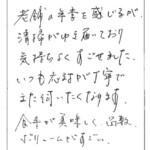 老舗の年季を感じるが、
清掃が行き届いており
気持ちよくすごせました。
いつも応対が丁寧で
また伺いたくなります。
食事が美味しく、品数、
ボリュームがすごい。